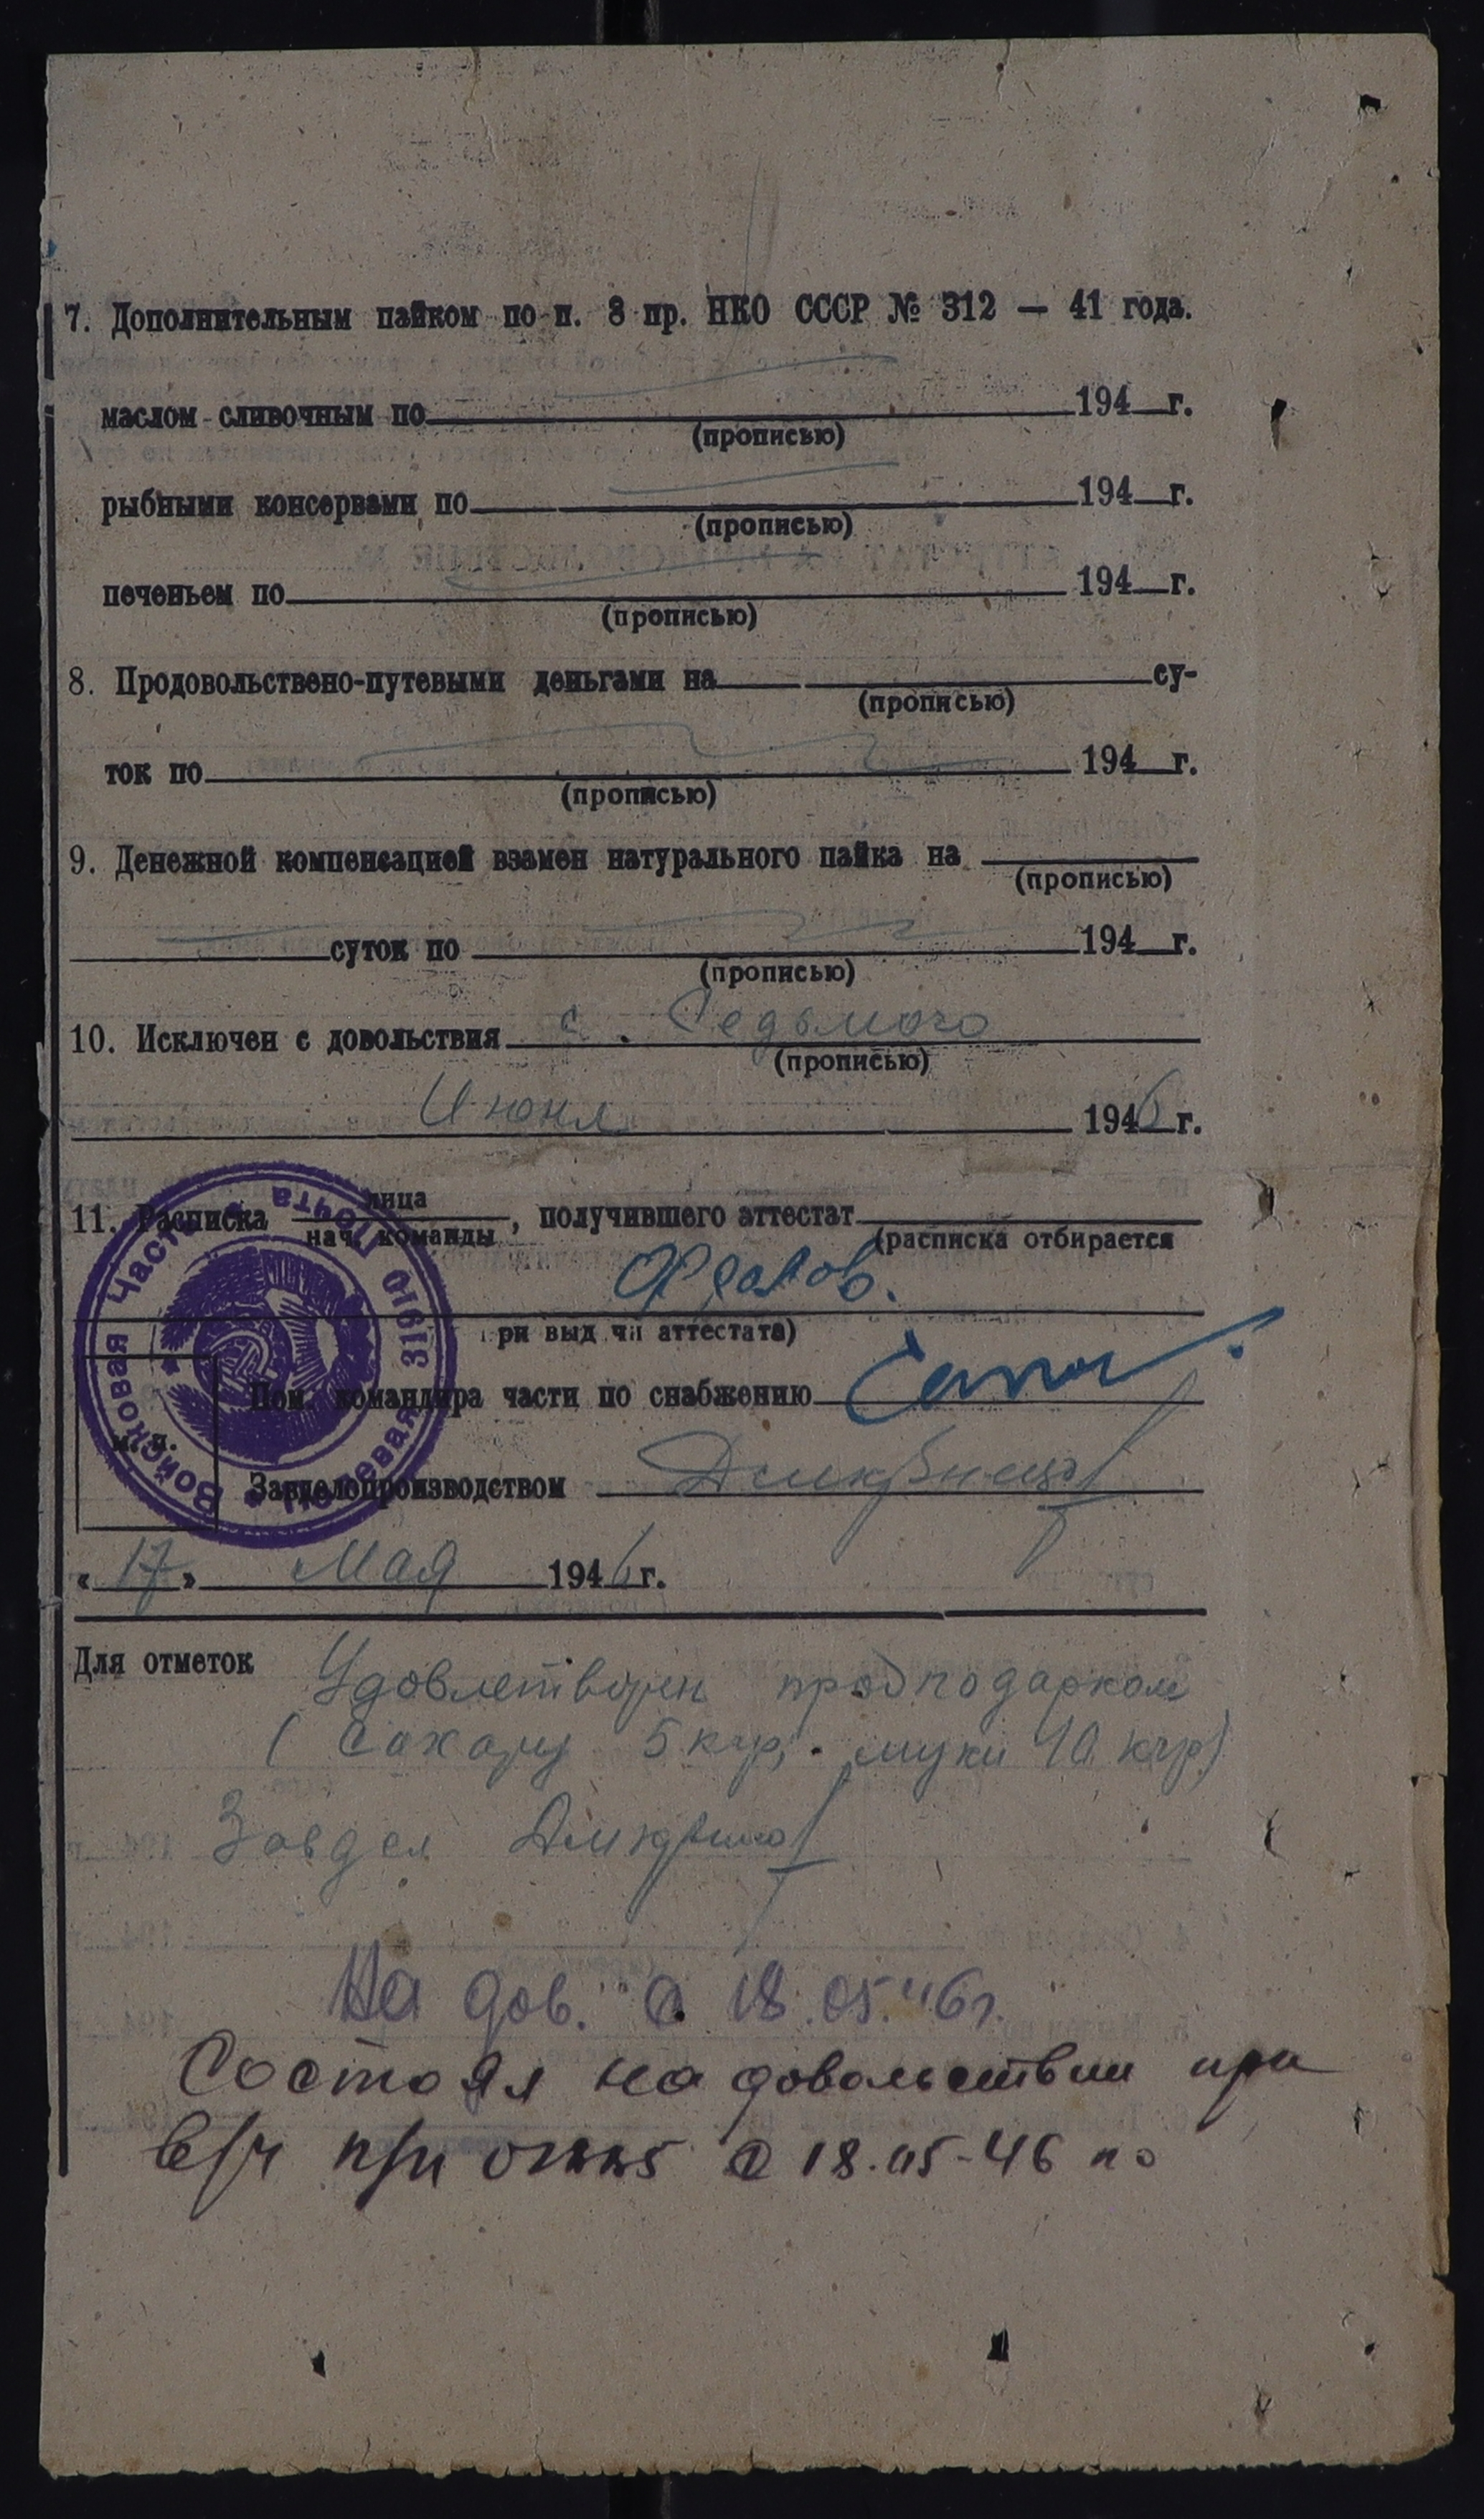 7. Дополнительным пайком по п. 3 пр. НКО СССР № 312 — 41 года.
маслом сливочным по 194 г.
(прописью)
рыбными консервами по 194 г.
(прописью)
печеньем по 194 г.
(прописью)
8. Продовольствено-путевыми деньгами на су-
(прописью)
ток по 194 г.
(прописью)
9. Денежной компенсацией взамен натурального пайка на
(прописью)
суток по 194 г.
(прописью)
10. Исключен с довольствия с. Седьмого
(прописью)
Июня 1946 г.
11. Расписка лица
нач. команды, получившего аттестат
(расписка отбирается
при выд чи аттестата)
Войсковая Часть Полевая Почта 31610
Пом. командира части по снабжению
м. п.
Завделопроизводством
«17» Мая 1946 г.
Для отметок Удовлетворен продподарком
(Сахару 5 кгр, муки 10 кгр)
Завдел
На дов. с 18.05.46г.
Состоял на довольствии при
в/ч п/п с 18.05-46 по